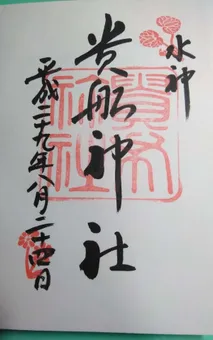 水神
貴船神社
平成二十九年八月二十四日
貴船
神社